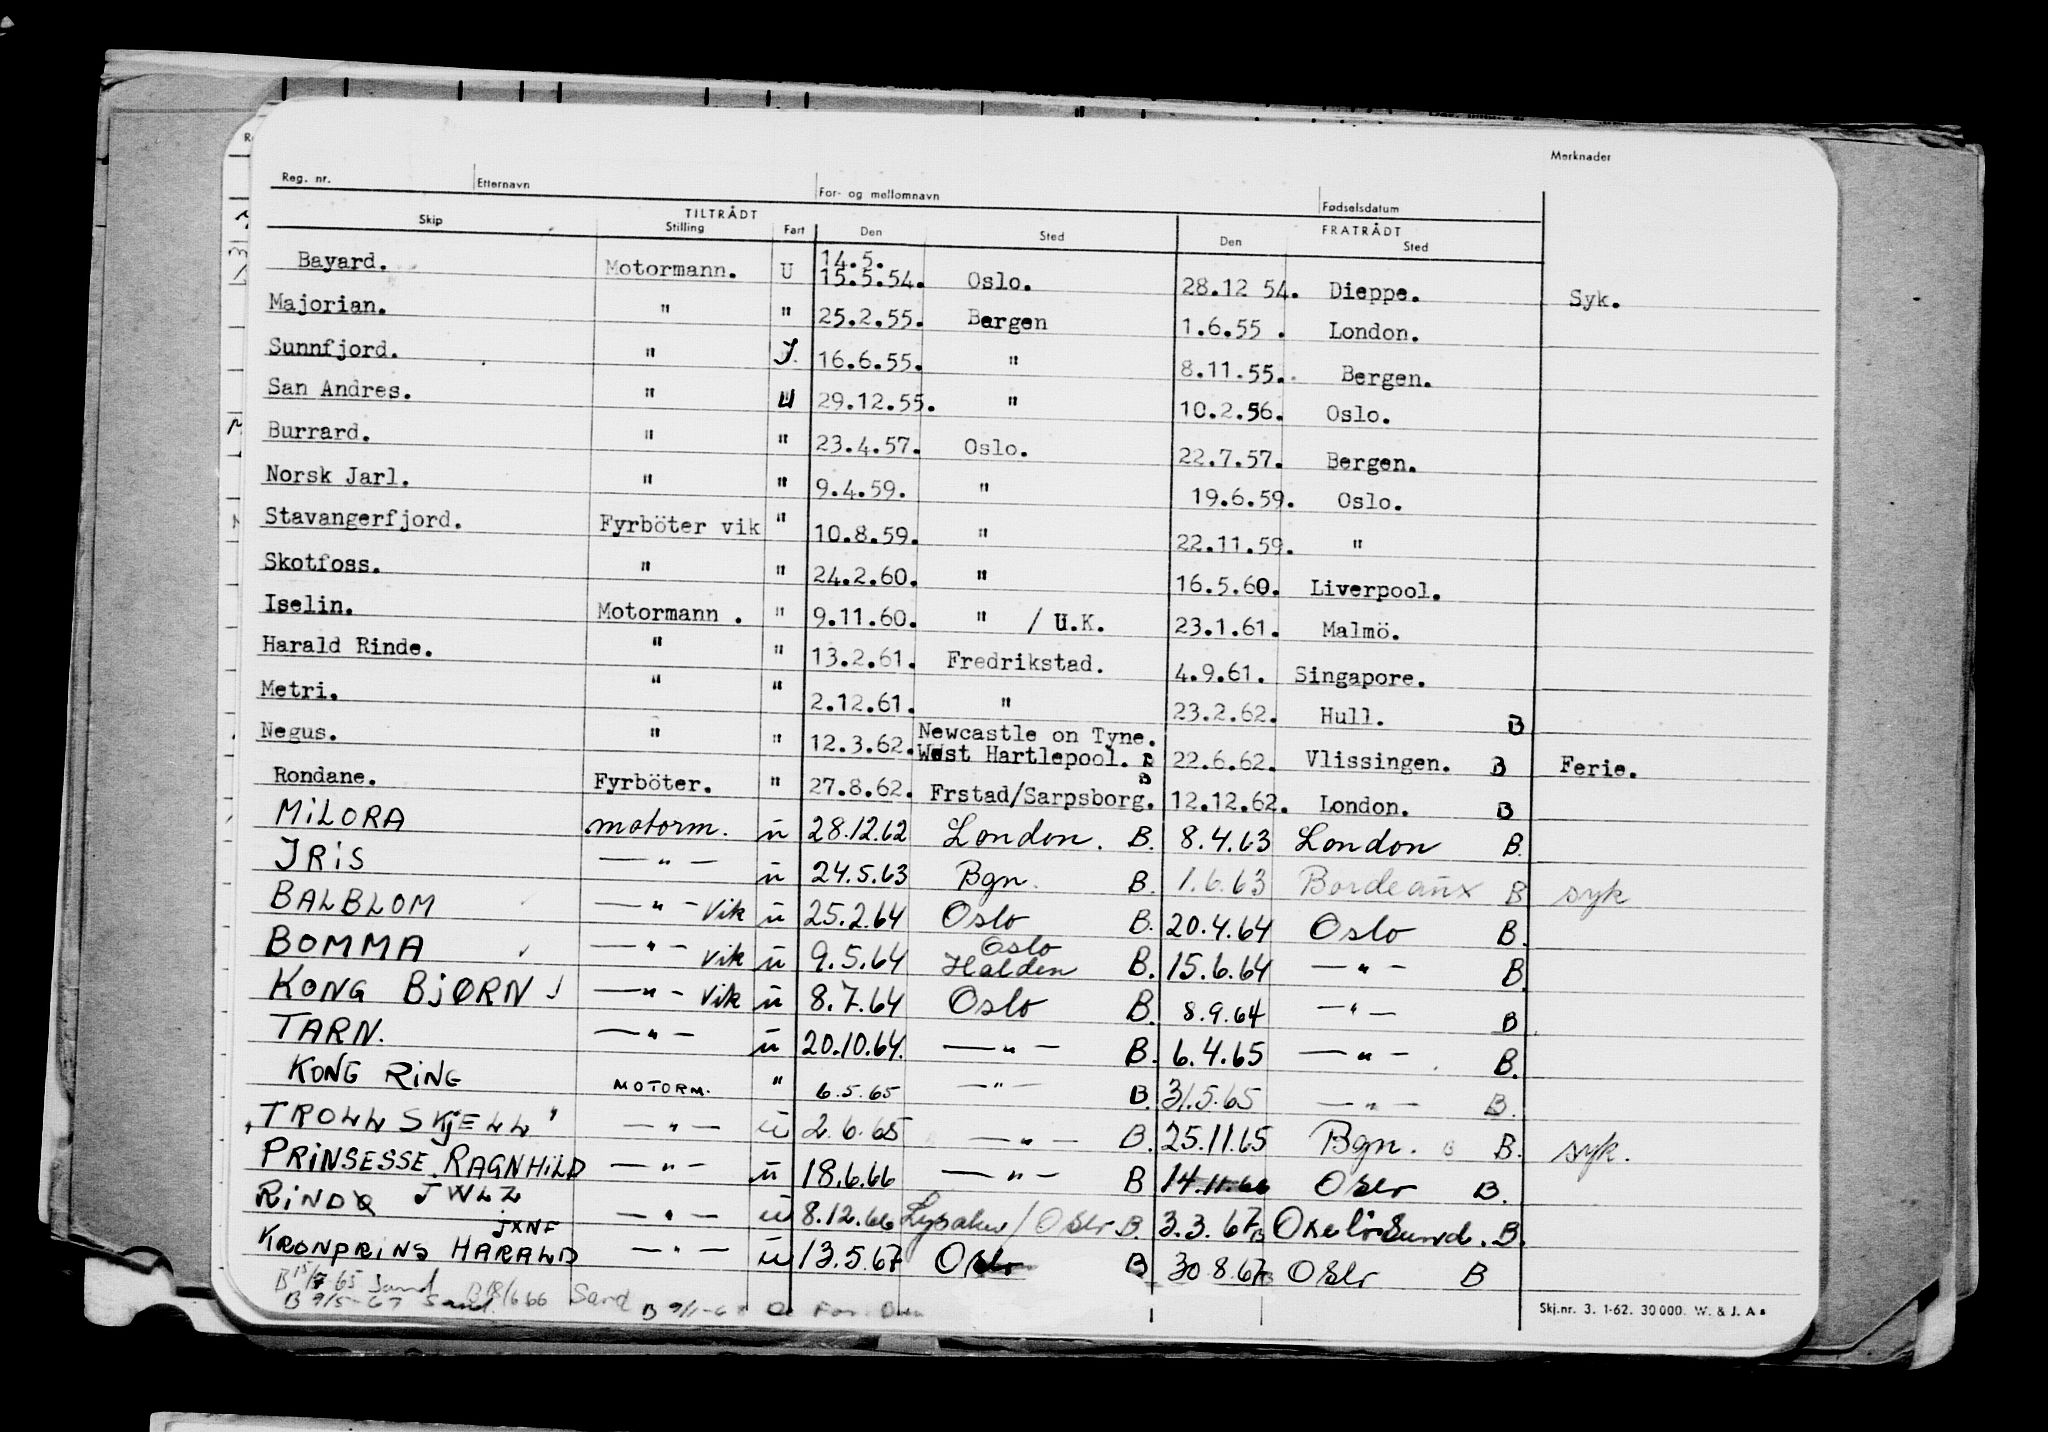 Merknader
Reg. nr. Etternavn For- og mellomnavn Fødselsdatum
TILTRÅDT FRATRÅDT
Skip Stilling Fart Den Sted Den Sted
14.5.
Bayard. Motormann. U 15.5.54. Oslo. 28.12 54. Dieppe. Syk.
Majorian. " " 25.2.55. Bergen 1.6.55 . London.
Sunnfjord. " J. 16.6.55. " 8.11.55. Bergen.
San Andres. " U 29.12.55. " 10.2.56. Oslo.
Burrard. " " 23.4.57. Oslo. 22.7.57. Bergen.
Norsk Jarl. " " 9.4.59. " 19.6.59. Oslo.
Stavangerfjord. Fyrböter vik " 10.8.59. " 22.11.59. "
Skotfoss. " " 24.2.60. " 16.5.60. Liverpool.
Iselin. Motormann . " 9.11.60. " / U.K. 23.1.61. Malmö.
Harald Rinde. " " 13.2.61. Fredrikstad. 4.9.61. Singapore.
Metri. " " 2.12.61. " 23.2.62. Hull. B
Newcastle on Tyne.
Negus. " " 12.3.62. West Hartlepool. B 22.6.62. Vlissingen. B Ferie.
Rondane. Fyrböter. " 27.8.62. Frstad/Sarpsborg. B 12.12.62. London. B
MiLORA motorm. ü 28.12.62 London. B. 8.4.63 London B.
JRiS —"— ü 24.5.63 Bgn. B. 1.6.63 Bordeaüx B syk
BALBLOM —"— vik ü 25.2.64 Oslo B. 20.4.64 Oslo B.
Oslo
BOMMA —"— vik ü 9.5.64 Halden B. 15.6.64 —"— B.
KONG BjØRN —"— vik ü 8.7.64 Oslo B. 8.9.64 —"— B
TARN. —"— ü 20.10.64. —"— B. 6.4.65 —"— B.
KONG RiNG MOTORM. " 6.5.65 —"— B. 31.5.65 —"— B.
"TROLL SKjELL" —"— ü 2.6.65 —"— B. 25.11.65 Bgn. B. syk.
PRiNSESSE RAGNHiLD —"— ü 18.6.66 —"— B 14.11.66 Oslo B.
RiNDQ JWLZ —"— ü 8.12.66 Lysaker/Oslo B. 3.3.67 B Oxelösund. B.
JXNF
KRONPRiNS HARALD —"— ü 13.5.67 Oslo B 30.8.67 B Oslo B
B 15/7 65 Sand B 18/6 66 Sand
B 9/5-67 Sand. B 9/1-6
Skj.nr. 3. 1-62. 30 000. W. & J. A s